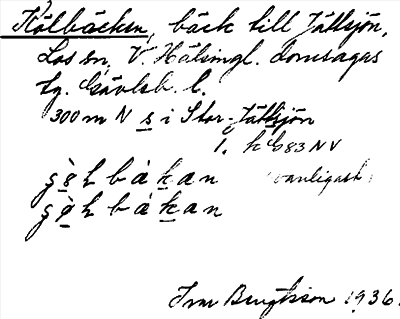 Kölbäcken, bäck till Jättsjön,
Los sn, V. Hälsingl. domsagas
tg. Gävleb. l.
300 m N s i Stor-Jättsjön
1. kb 83 NV
bàkan (vanligast)
bàkan
Ivar Bengtsson 1936.